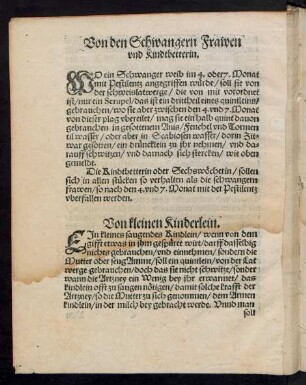 Von den Schwangern Frawen
vnd Kindbetterin.
WO ein Schwanger weib im 4. oder 7. Monat
mit Pestilentz angegriffen würde / soll sie von
der schweißlatwerge / die von mir verordnet
ist / nur ein Scrupel / das ist ein dritheil eines quintleins
gebrauchen / wo sie aber zwischen den 4. vnd 7. Monat
von dieser plag vbereilet / mag sie ein halb quint dauon
gebrauchen in gesottenem Anis / Fenchel vnd
wasser / oder aber in Scabiosen wasser / dorin Zit-
war gesotten / ein drüncklein zu jhr nehmen / vnd dar-
rauff schwitzen / vnd darnach sich stercken / wie oben
gemeldt.
Die Kindbetterin oder Sechswöchetin / sollen
sich in allen stücken so verhalten als die schwangern
frawen / so nach den 4. vnd 7. Monat mit der Pestilentz
vberfallen werden.
Von kleinen Kinderlein.
EIn kleines saugendes Kindlein / wenn von dem
gifft etwas in jhm gespüret wirt / darff dasselbig
nichts gebrauchen / vnd einnehmen / sondern die
Mutter oder seug Amme / soll ein quintlein / von der Lat
werge gebrauchen / doch das sie nicht schwitze / sonder
wann die Artzney ein Wenig bey jhr erwarmet / das
kindlein offt zu saugen nötigen / damit solche krafft der
Artzney / so die Mutter zu sich genommen / dem Armen
kindlein / in der milch bey gebracht werde. Vnnd man
soll